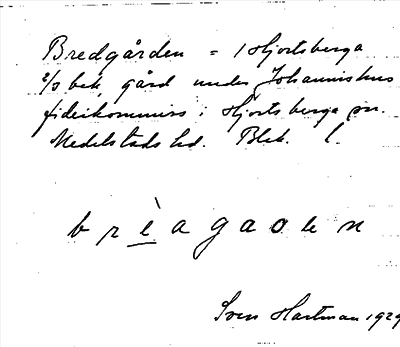 Bredgården = 1 Hjortsberga
2/3 bek, gård under Johannishus
fideikommiss i Hjortsberga sn.
Medelstads hd. Blek. l.
brèagaoen
Sven Hartman 1929